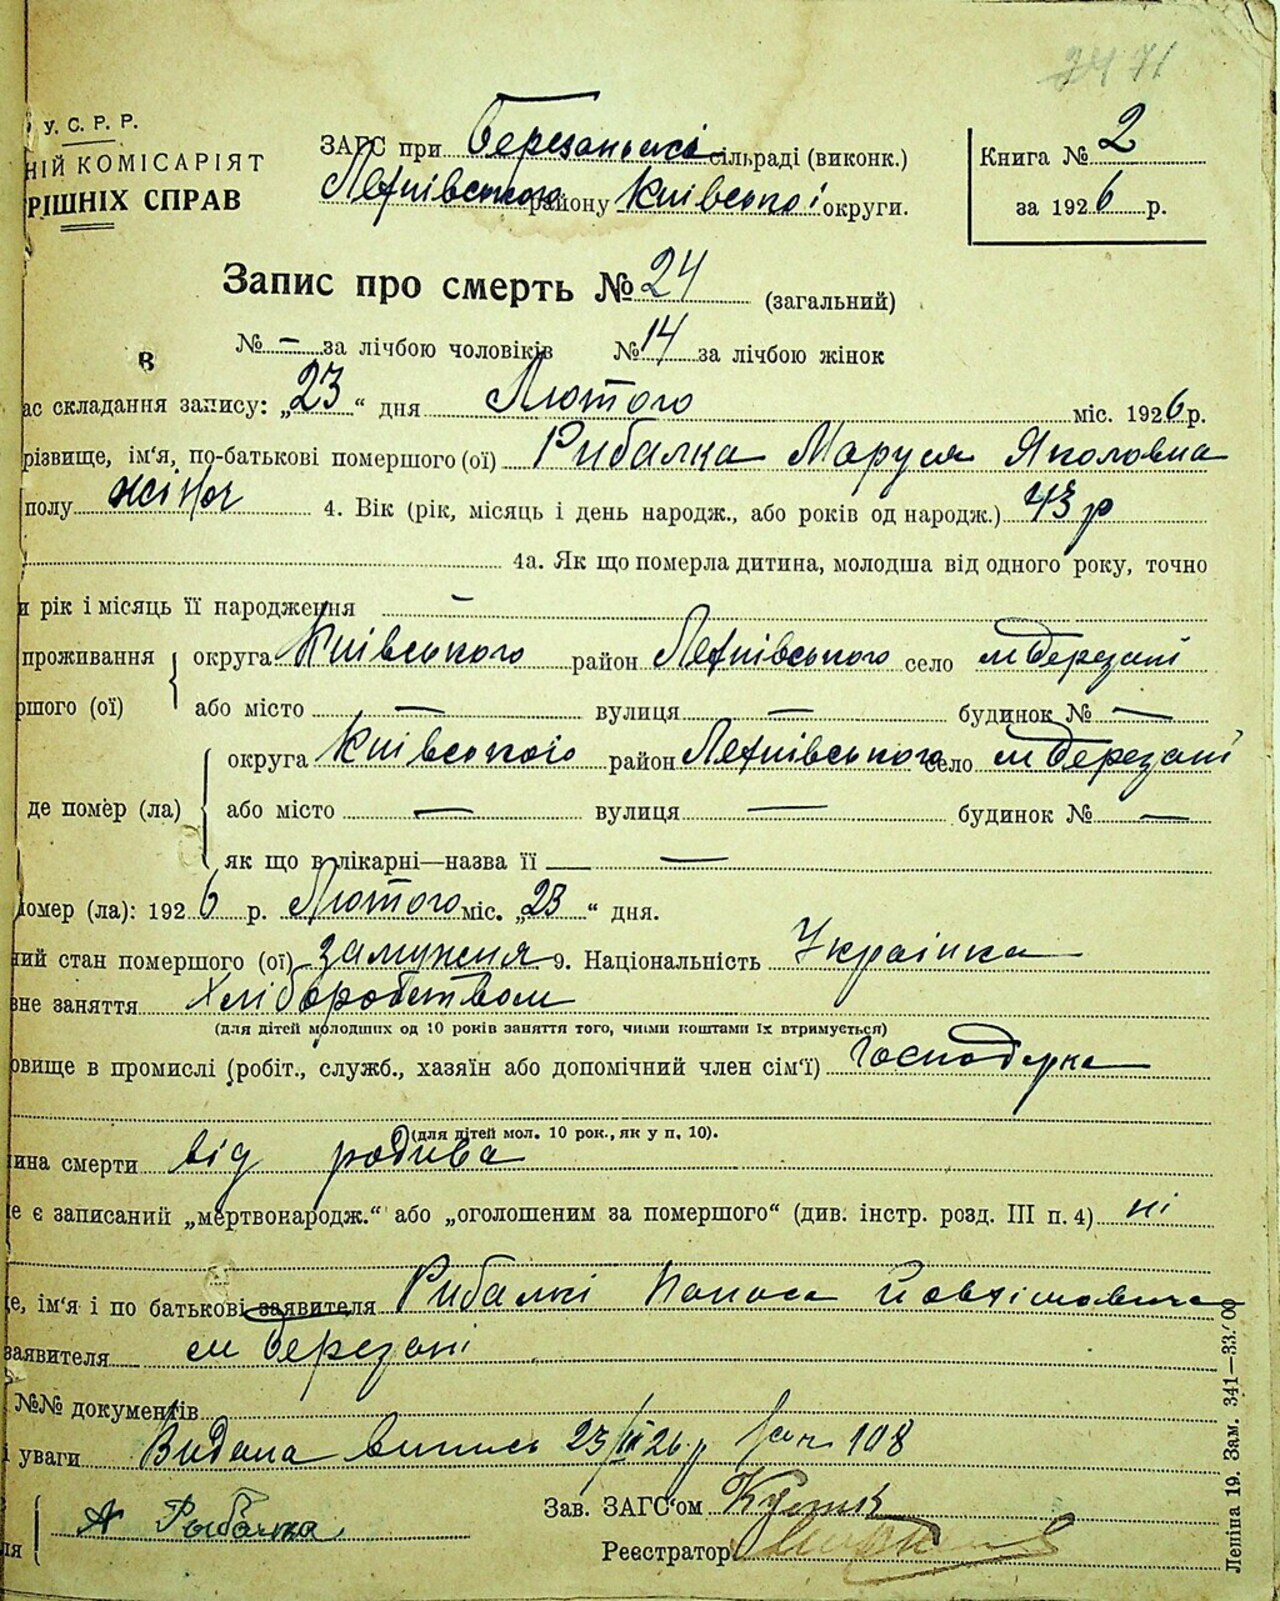 У. С. Р. Р.
НІЙ КОМІСАРІЯТ
РІШНІХ СПРАВ
71
ЗАГС при Березанські сільраді (виконк.)
району Київської округи.
Книга № 2
за 1926 р.
Запис про смерть № 24 (загальний)
№ — за лічбою чоловіків № 14 за лічбою жінок
В
ас складання запису: „23“ дня Лютого міс. 1926 р.
різвище, ім'я, по-батькові помершого (ої) Рибалка Маруся Яколовна
полу жіноч 4. Вік (рік, місяць і день народж., або років од народж.) 43 р
4а. Як що померла дитина, молодша від одного року, точно
и рік і місяць її народження —
проживання округа Київського район село м Березані
ршого (ої) або місто — вулиця — будинок № —
округа Київського район село м Березані
де помер (ла) або місто — вулиця — будинок № —
як що в лікарні—назва її —
помер (ла): 1926 р. Лютого міс. „23“ дня.
ний стан помершого (ої) замужня 9. Національність Українка
вне заняття Хліборобством
(для дітей молодших од 10 років заняття того, чиїми коштами їх втримується)
овище в промислі (робіт., служб., хазяїн або допомічний член сім'ї) Господарка
(для дітей мол. 10 рок., як у п. 10).
ина смерти від родива
е є записаний „мертвонародж.“ або „оголошеним за помершого“ (див. інстр. розд. III п. 4) ні
е, ім'я і по батькові заявителя Рибалкі Панаса Йовхімовича
заявителя м Березані
№№ документів
і уваги Видана випись 23/III 26 р 108
ля А Рыбалка
Зав. ЗАГС'ом
Реєстратор
Леніна 19. Зам. 341—33.' 00